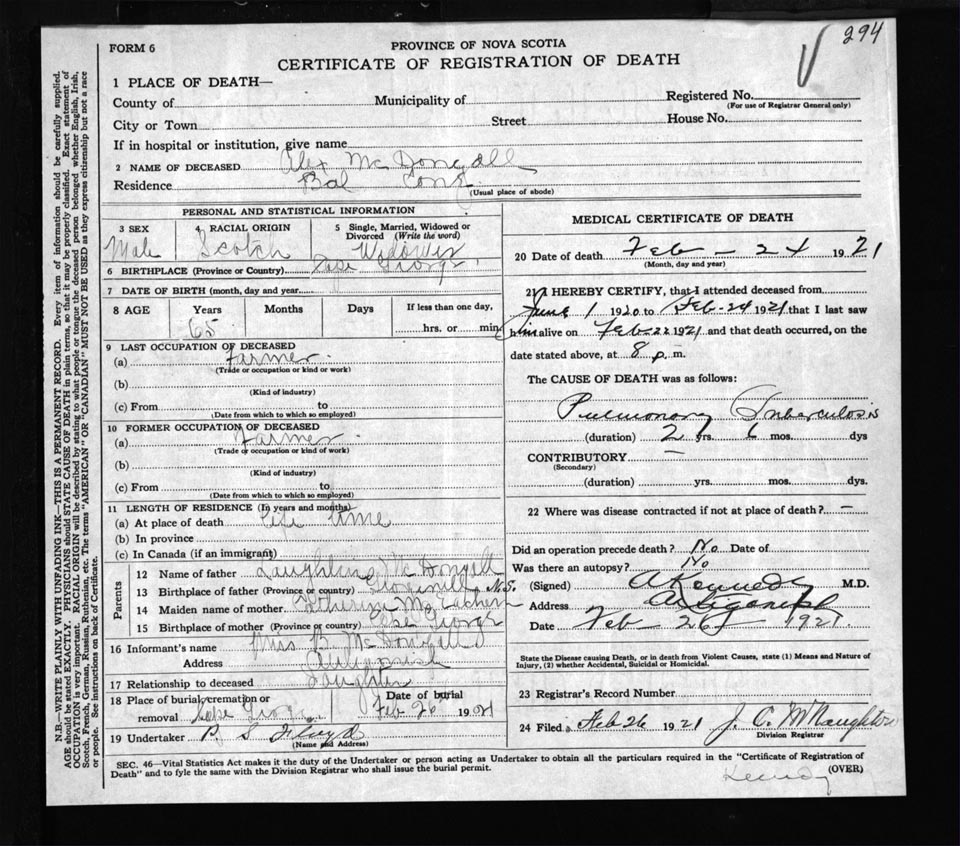 294
FORM 6
PROVINCE OF NOVA SCOTIA
CERTIFICATE OF REGISTRATION OF DEATH
1 PLACE OF DEATH—
County of Municipality of Registered No.
(For use of Registrar General only)
City or Town Street House No.
If in hospital or institution, give name
2 NAME OF DECEASED Alex McDongall
Residence Bal
(Usual place of abode)
PERSONAL AND STATISTICAL INFORMATION
3 SEX 4 RACIAL ORIGIN 5 Single, Married, Widowed or Divorced (Write the word)
Male Scotch Widower
6 BIRTHPLACE (Province or Country) Cape George
7 DATE OF BIRTH (month, day and year)
8 AGE Years Months Days If less than one day,
65 hrs. or min
9 LAST OCCUPATION OF DECEASED
(a) Farmer
(Trade or occupation or kind or work)
(b)
(Kind of industry)
(c) From to
(Date from which to which so employed)
10 FORMER OCCUPATION OF DECEASED
(a) Farmer
(Trade or occupation or kind of work)
(b)
(Kind of industry)
(c) From to
(Date from which to which so employed)
11 LENGTH OF RESIDENCE (In years and months)
(a) At place of death life time
(b) In province
(c) In Canada (if an immigrant)
Parents
12 Name of father Laughline McDongall
13 Birthplace of father (Province or country) N.S.
14 Maiden name of mother Catherine McEachern
15 Birthplace of mother (Province or country) Cape George
16 Informant's name Miss B. McDongall
Address Antigonish
17 Relationship to deceased Daughter
18 Place of burial, cremation or removal Cape George Date of burial Feb 26 1921
19 Undertaker P. S. Floyd
(Name and Address)
MEDICAL CERTIFICATE OF DEATH
20 Date of death Feb — 24 1921
(Month, day and year)
21 I HEREBY CERTIFY, that I attended deceased from
June 1 1920 to Feb-24 1921 that I last saw
him alive on Feb 22 1921 and that death occurred, on the
date stated above, at 8 p. m.
The CAUSE OF DEATH was as follows:
Pulmonary Tuberculosis
(duration) 2 yrs. 6 mos. dys
CONTRIBUTORY —
(Secondary)
(duration) yrs. mos. dys.
22 Where was disease contracted if not at place of death? —
Did an operation precede death? No Date of
Was there an autopsy? No
(Signed) A Kennedy M.D.
Address Antigonish
Date Feb 1921
State the Disease causing Death, or in death from Violent Causes, state (1) Means and Nature of
Injury, (2) whether Accidental, Suicidal or Homicidal.
23 Registrar's Record Number
24 Filed Feb 26 1921 J. C. McNaughton
Division Registrar
SEC. 46—Vital Statistics Act makes it the duty of the Undertaker or person acting as Undertaker to obtain all the particulars required in the "Certificate of Registration of
Death" and to fyle the same with the Division Registrar who shall issue the burial permit.
(OVER)
N.B.—WRITE PLAINLY WITH UNFADING INK—THIS IS A PERMANENT RECORD. Every item of information should be carefully supplied.
AGE should be stated EXACTLY. PHYSICIANS should STATE CAUSE OF DEATH in plain terms, so that it may be properly classified. Exact statement of
OCCUPATION is very important. RACIAL ORIGIN will be described by stating to what people or tongue the deceased person belonged whether English, Irish,
Scotch, French, German, Russian, Ruthenian, etc. The terms "AMERICAN" OR "CANADIAN" MUST NOT BE USED as they express citizenship but not a race
or people. See instructions on back of Certificate.